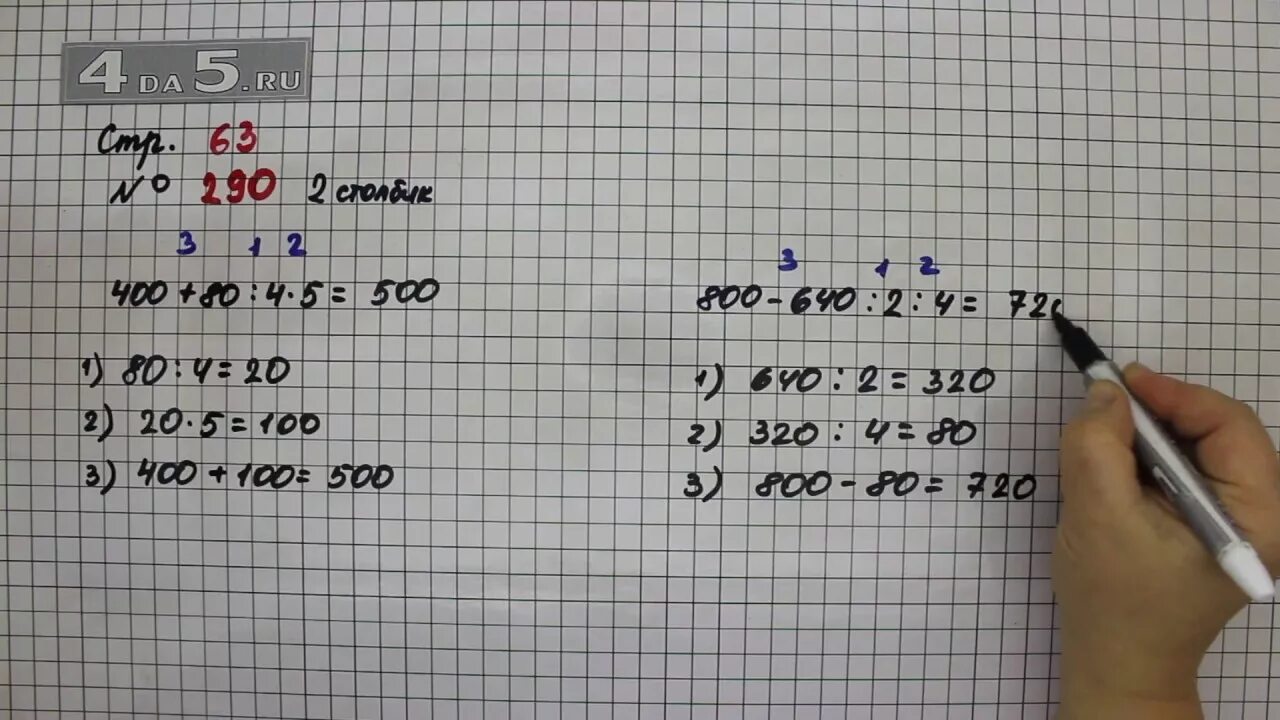 4 DA 5.RU
Стр. 63
№ 290 2 столбик
3 1 2
400 + 80 : 4 · 5 = 500
1) 80 : 4 = 20
2) 20 · 5 = 100
3) 400 + 100 = 500
3 1 2
800 - 640 : 2 : 4 = 720
1) 640 : 2 = 320
2) 320 : 4 = 80
3) 800 - 80 = 720